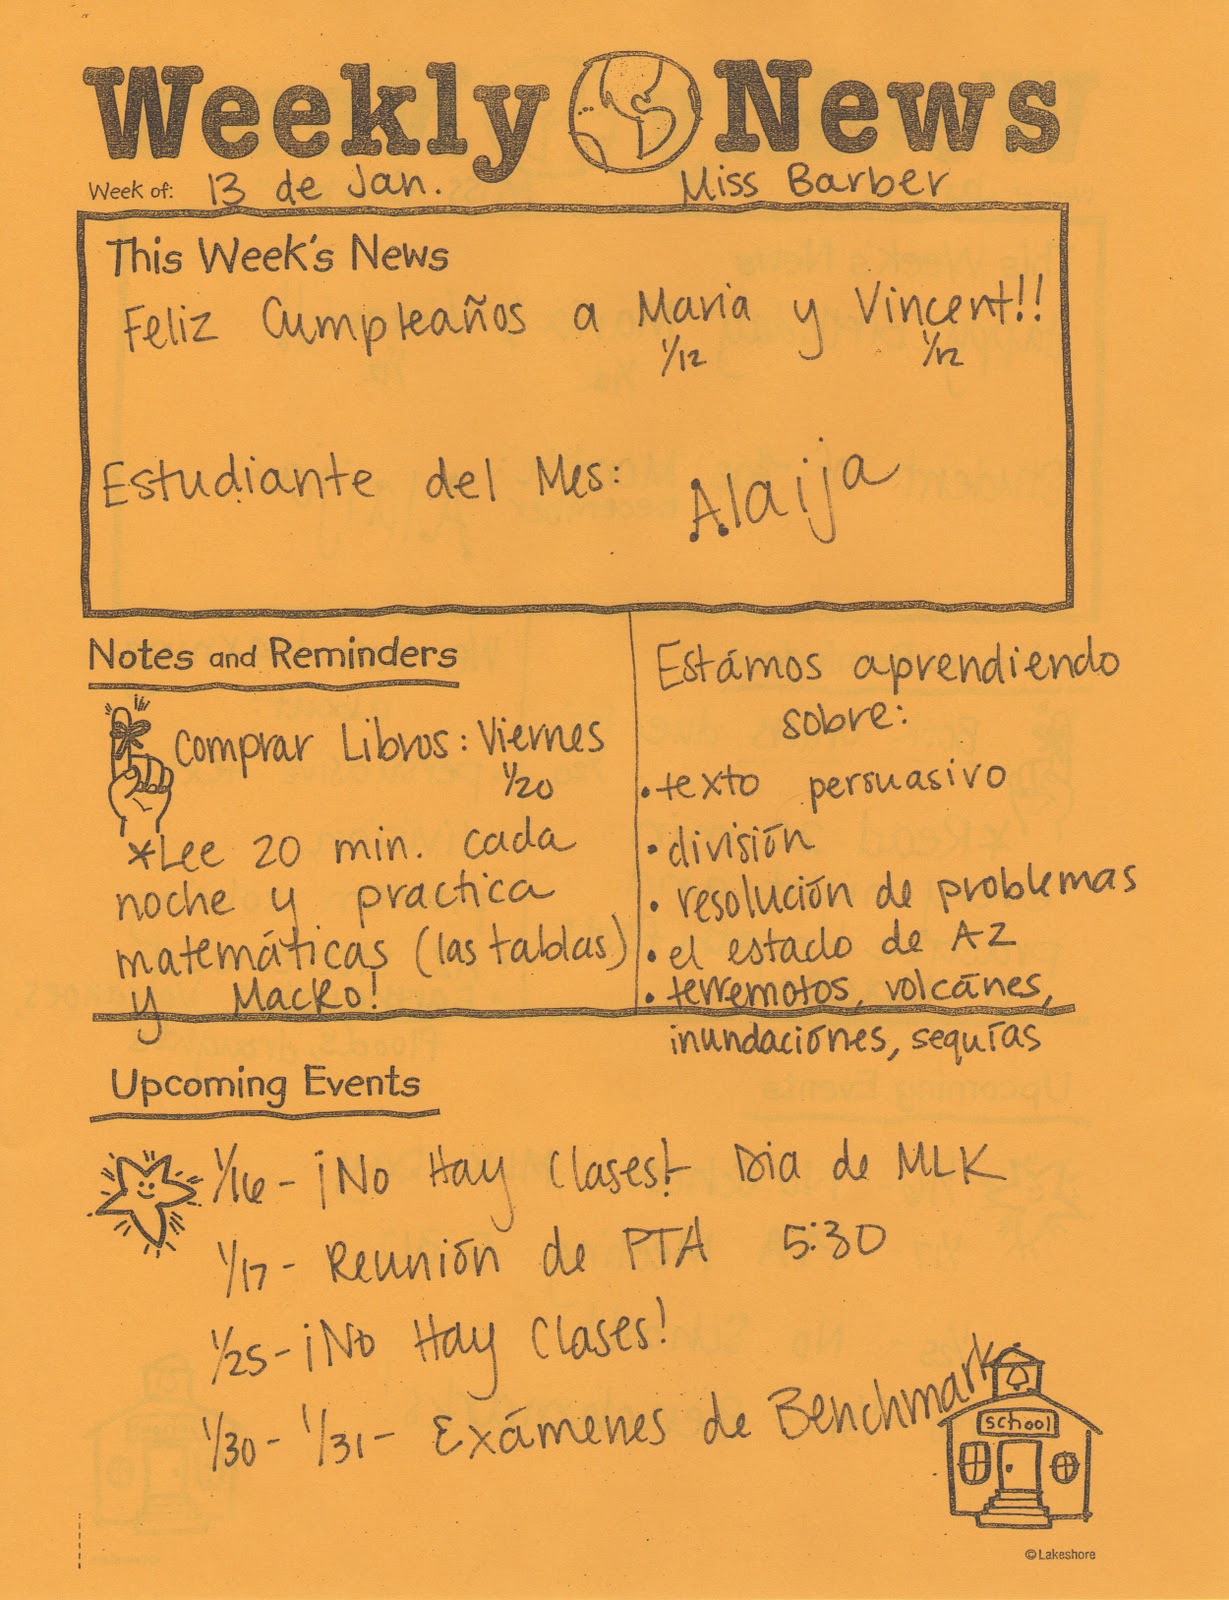 Weekly News
Week of: 13 de Jan. Miss Barber
This Week's News
Feliz Cumpleaños a Maria y Vincent!!
1/12 1/12
Estudiante del Mes: Alaija
Notes and Reminders
Comprar Libros: Viernes
1/20
*Lee 20 min. cada
noche y practica
matemáticas (las tablas)
y Macko!
Estámos aprendiendo
sobre:
• texto persuasivo
• división
• resolución de problemas
• el estado de AZ
• terremotos, volcánes,
inundaciónes, sequías
Upcoming Events
1/16 - ¡No Hay Clases! Dia de MLK
1/17 - Reunión de PTA 5:30
1/25 - ¡No Hay Clases!
1/30 - 1/31 - Exámenes de Benchmark
school
© Lakeshore